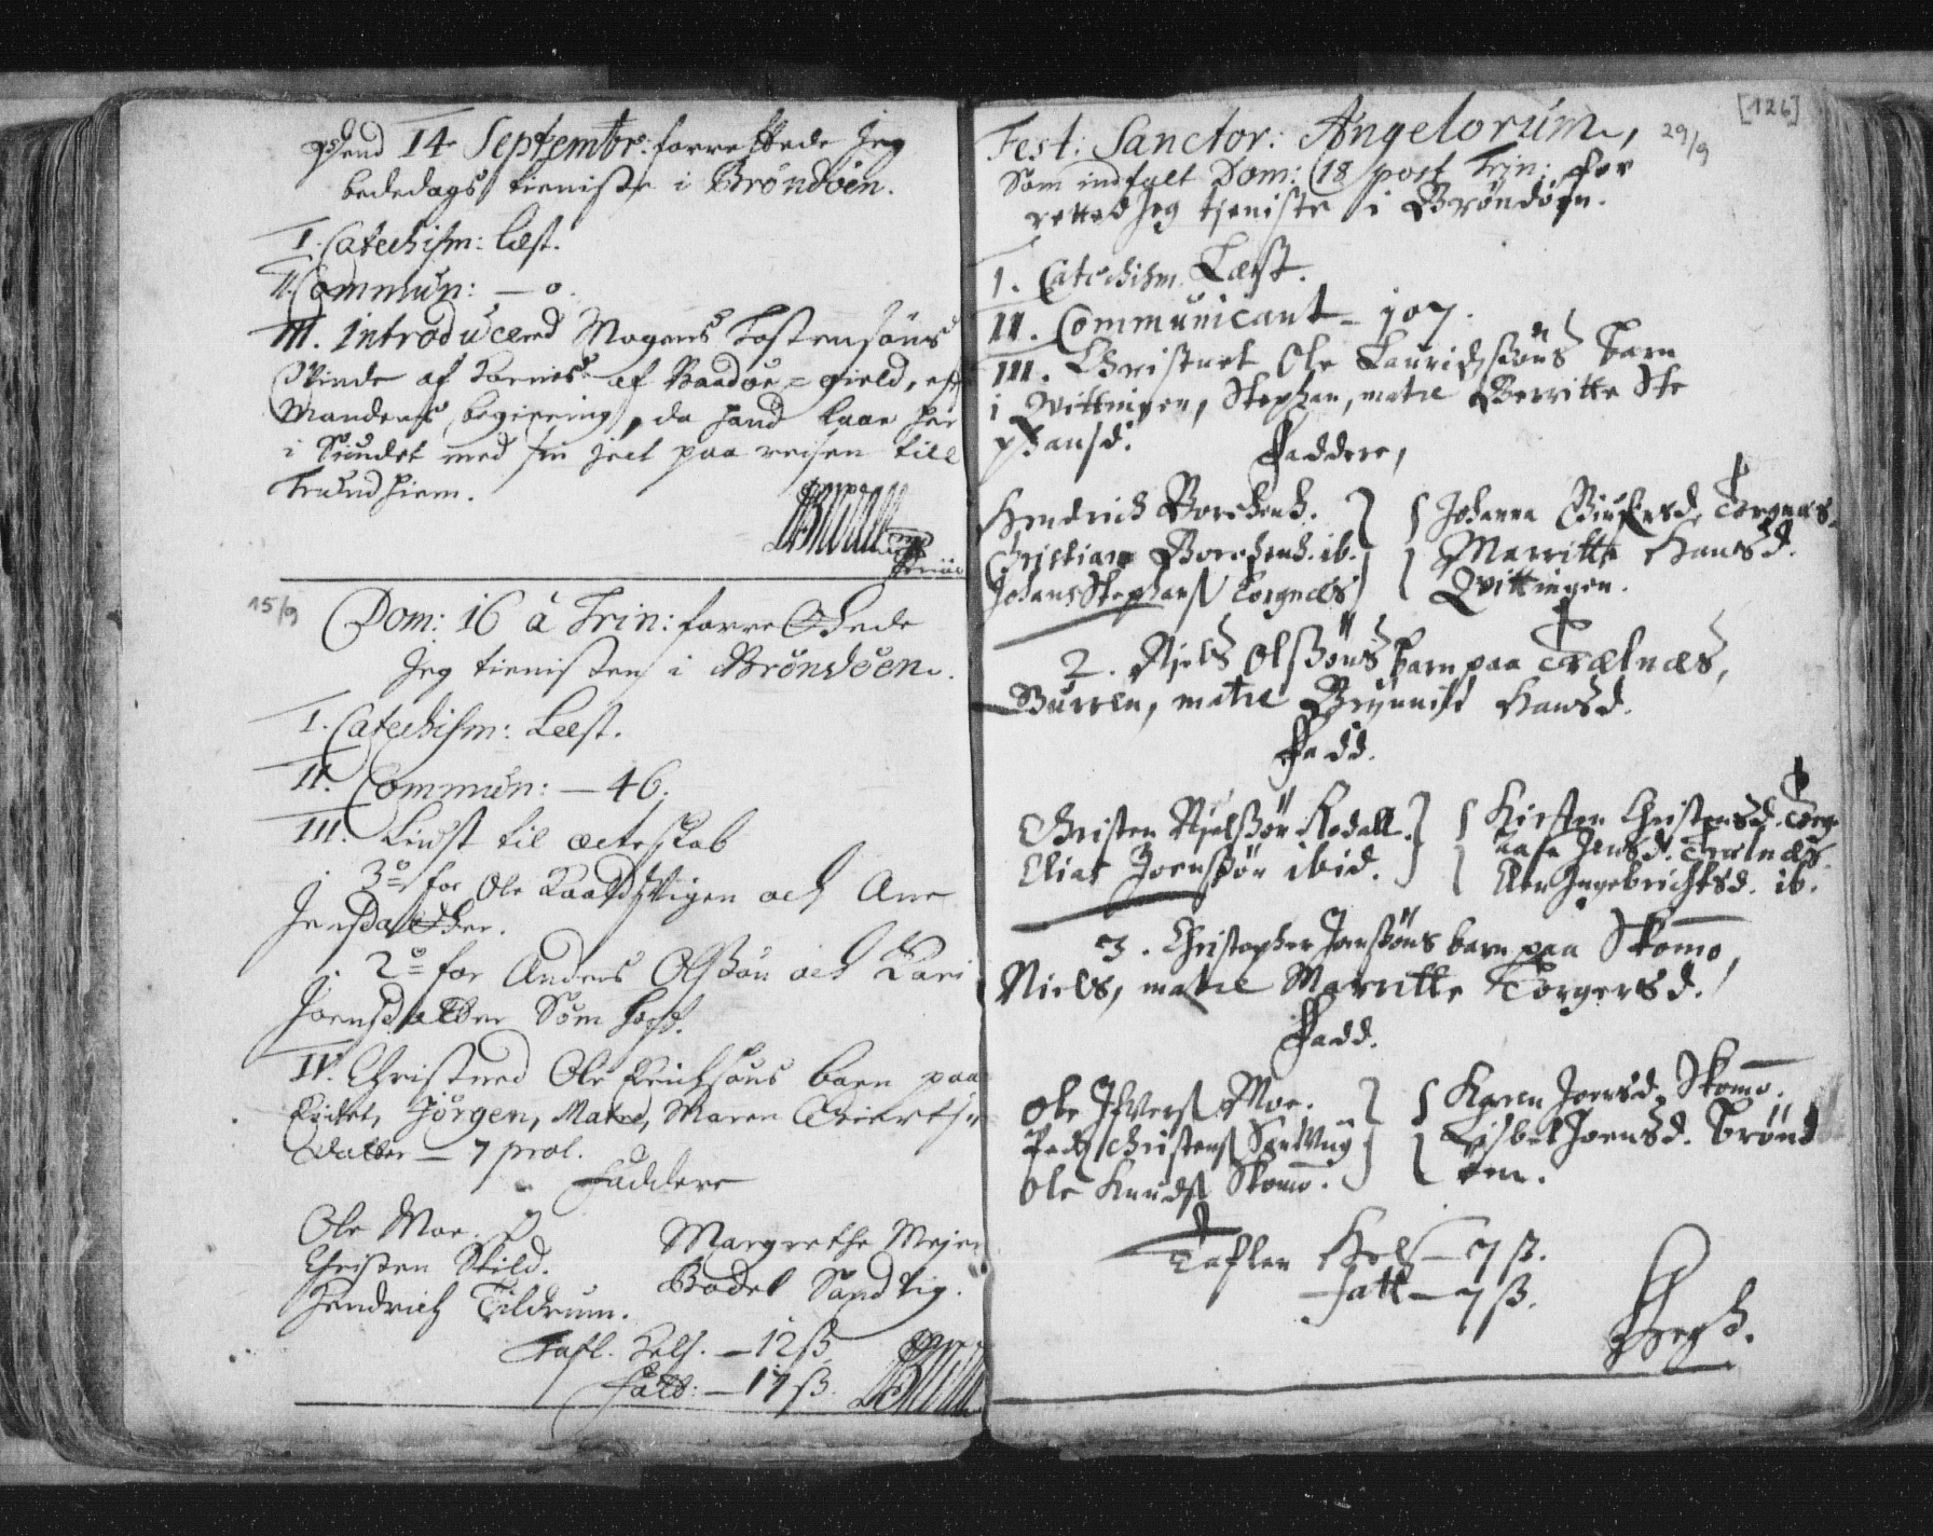 dend 14 Septembr: forrettede Jeg
bededags tieniste i Brøndøen.
I. Catechism: Læst.
II. Commun: — 0.
III. Introducered Mogens Tostensøns
Qvinde af af Baadøe-Gield, eft
Mandens begiering, da hand laae her
i Sundet med sin Ject paa reisen till
Trundhiem.
15/9
Dom: 16 à Trin: forrettede
Jeg tienisten i Brøndøen.
I. Catechism: Læst.
II. Commun: — 46.
III. Liust til ecteskab
3º for Ole och Ane
Jensdatter.
2º for Anders Olssøn och Kari
Joensdatter Søm
IV. Christned Ole Erichsøns barn paa
Jörgen, Matre, Maren
datter — 7 prol.
Faddere
Ole Moe.
Christen Skild.
Hendrich Tildrum.
Margrethe Meje
Bodel Sandvig.
Tafl. Hels. — 12 ß
Fatt: — 17 ß.
[126]
Fest: Sanctor: Angelorum, 29/9
Som indfalt Dom: 18 post Trin: for
retted Jeg tjeniste i Brøndøen.
I. Catechism. Læst.
II. Communicant — 107.
III. Christnet Ole Lauridsøns barn
i Vittingen, Stephan, matre Berritte Ste
phansd.
Faddere,
Hendrich Borchenh.
Christian Borchenh. ib.
Johans Stephans Torgnæs
Johanna Torgnæs
Marritte Hansd.
Vittingen.
2. Niels Olssøns barn paa Trælnæs,
Burren, matre Brynnild Hansd.
Fadd.
Christen Njelssøn Rodall.
Elias Joenssøn ibid.
Kirsten Christensd. Torg
Jensd. Trælnæs.
Elen Ingebrichtsd. ib.
3. Christopher Jonssøns barn paa Skomo,
Niels, matre Marritte Torgersd.
Fadd.
Ole Ifvers Moe.
Peder Christens Sandvüg
Ole Knuds Skomo.
Karen Joensd. Skomo.
Lisbet Joensd. Brönd
öen.
Taflen Hels — 7 ß.
Fatt — 7 ß.